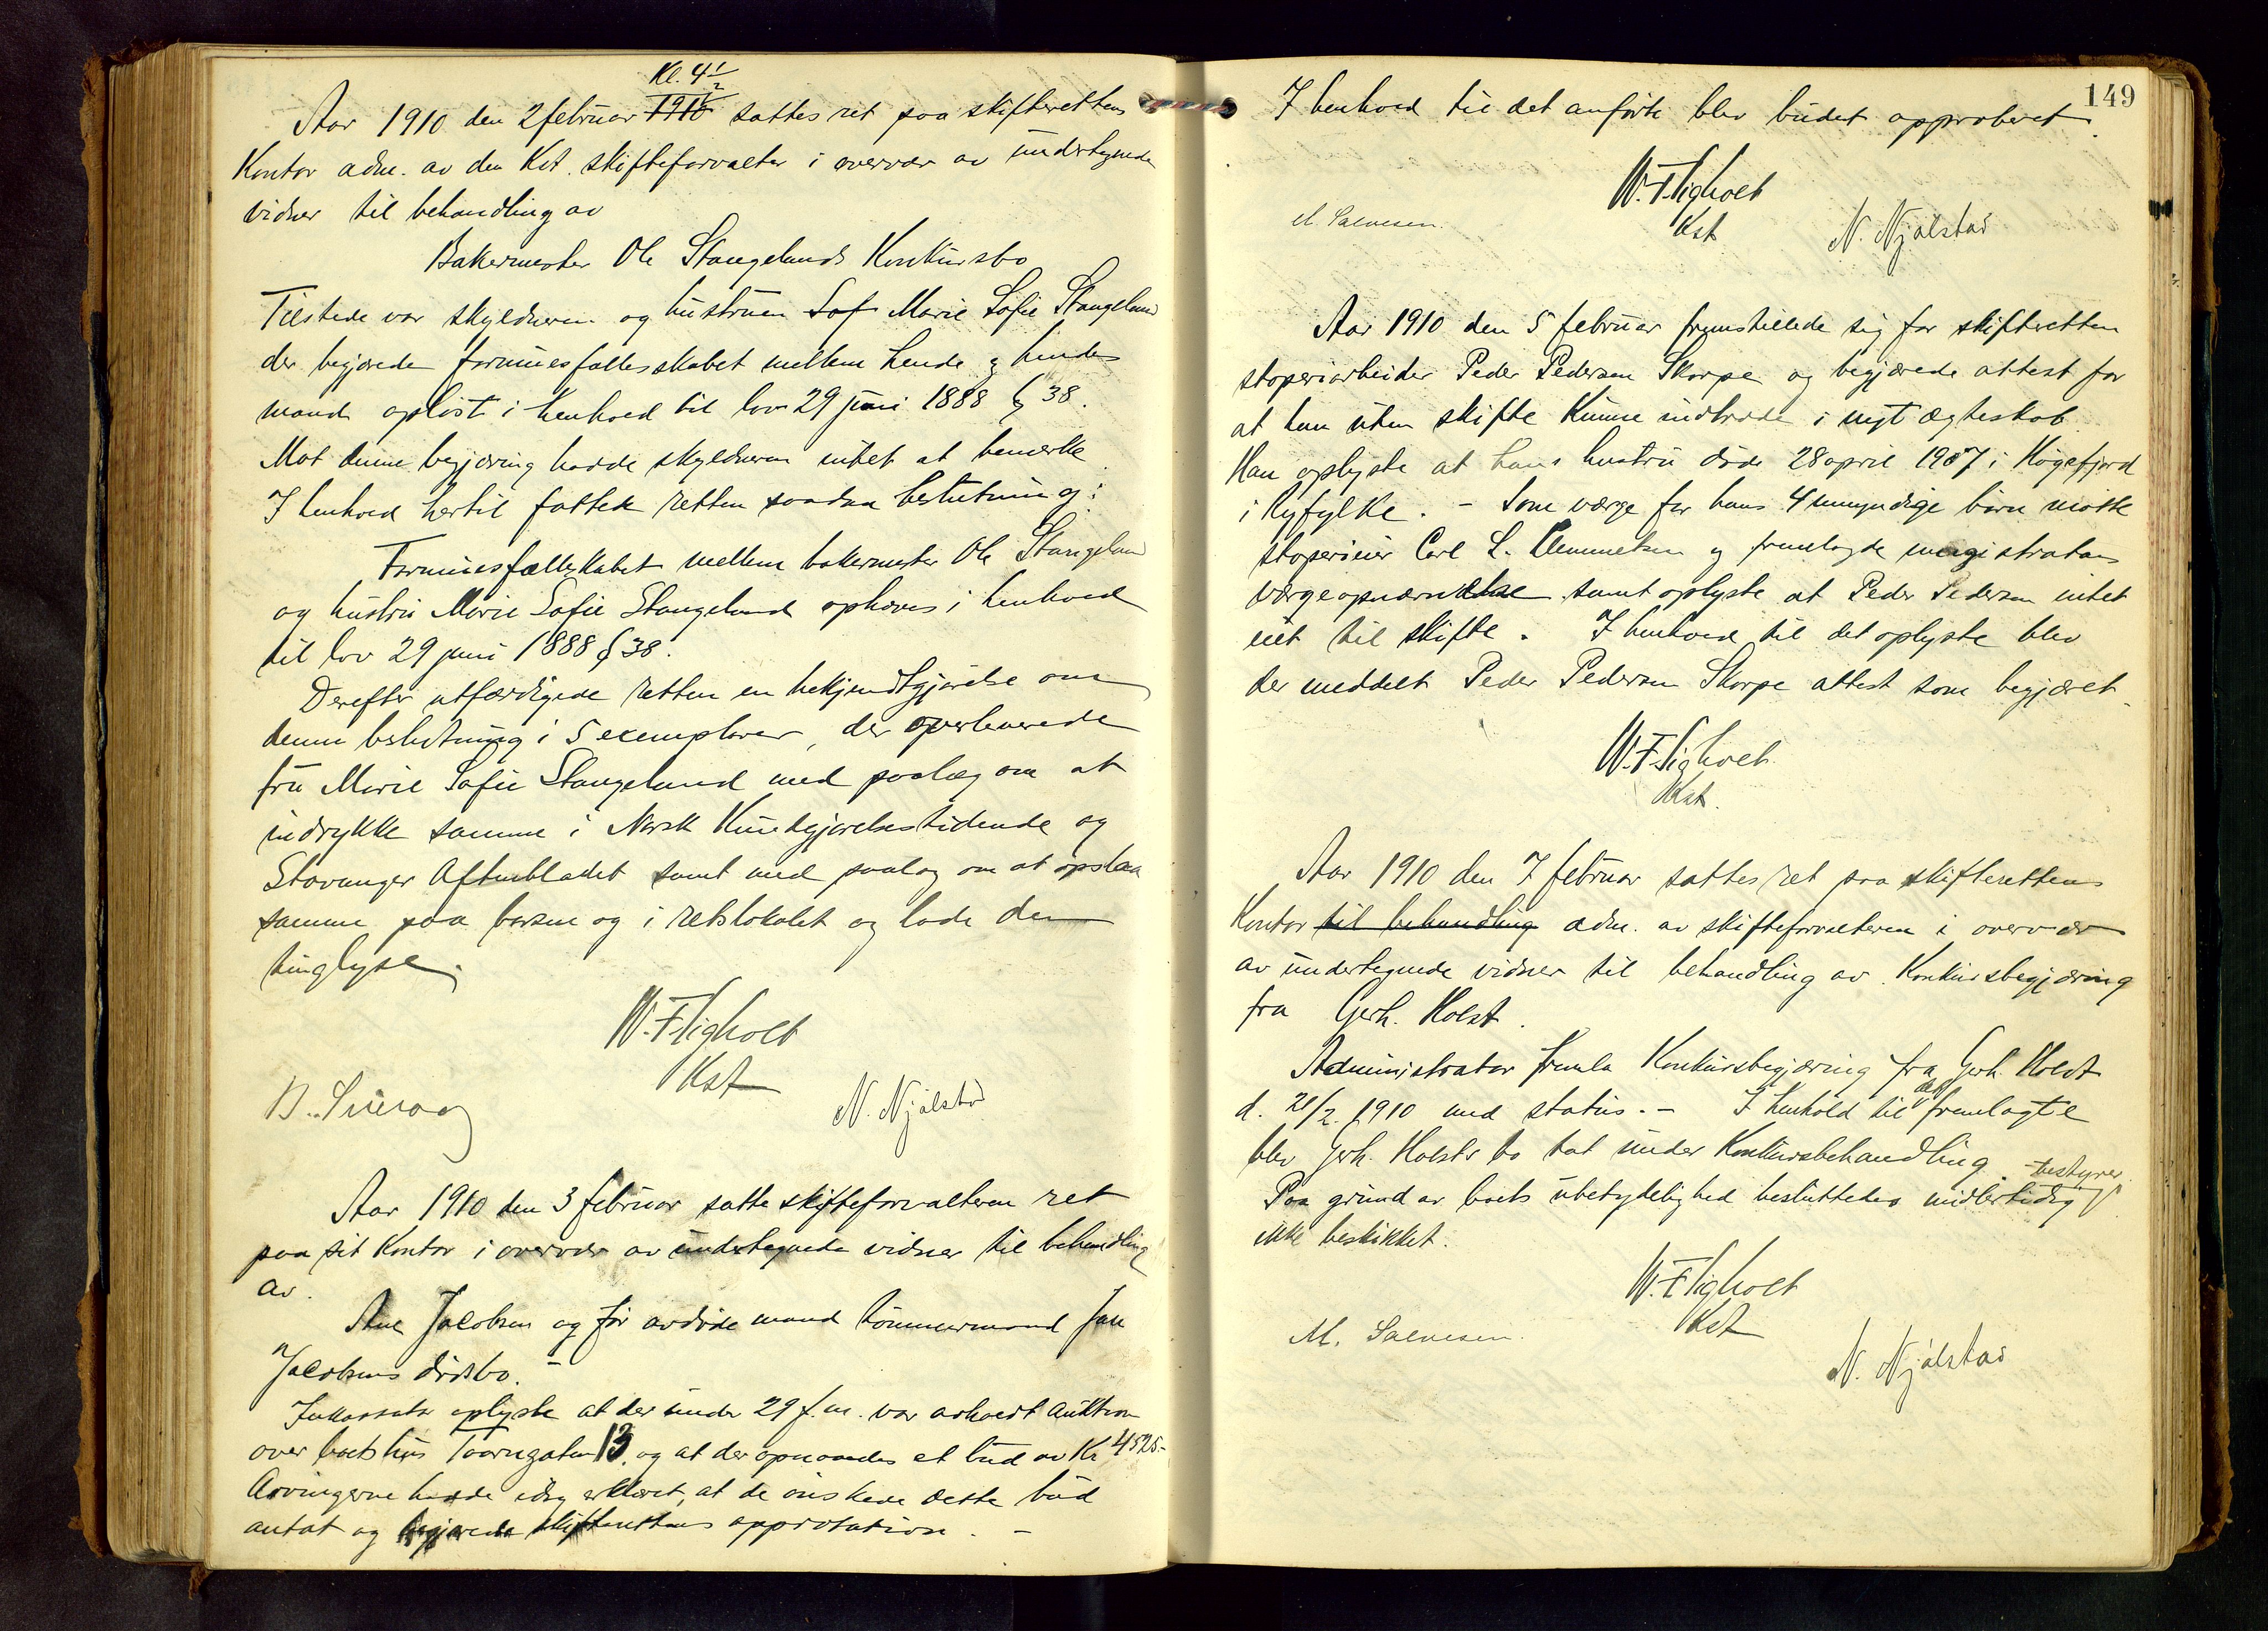 Kl. 4½
Aar 1910 den 2 februar 1910 sattes ret paa skifterettens
Kontor adm. av den Kst. skifteforvalter i overvær av undertegnede
vidner til behandling av
Bakermester Ole Stangelands Konkursbo
Tilstede var skyldneren og hustruen Sof Marie Sofie Stangeland
der begjærede formuesfællesskabet mellem hende og hendes
mand opløst i henhold til lov 29 juni 1888 § 38.
Mot denne begjæring hadde skyldneren intet at bemerke
I henhold hertil fattet retten saadan beslutning:
Formuesfællesskabet mellem bakermester Ole Stangeland
og hustru Marie Sofie Stangeland ophæves i henhold
til lov 29 juni 1888 § 38.
Derefter utfærdigede retten en bekjendtgjørelse om
denne beslutning i 5 exemplarer, der overleveredes
fru Marie Sofie Stangeland med paalæg om at
indrykke samme i Norsk Kundgjørelsestidende og
Stavanger Aftenbladet samt med paalæg om at opslaa
samme paa børsen og i retslokalet og lade den
tinglyse.
W. F. Sigholt
Kst
N. Njålstad
Aar 1910 den 3 februar satte skifteforvalteren ret
paa sit Kontor i overvær av undertegnede vidner til behandling
av.
Ane Jacobsen og før avdøde mand tømmermand Jan
Jacobsens dødsbo. –
Inkassator oplyste at der under 29 f. m. var avholdt auktion
over boets hus Taarngaten 13. og at der opnaaedes et bud av Kr 4525.-
Arvingerne havde idag erklæret, at de ønskede dette bud
antat og begjærede skifterettens approbation. –
149
I henhold til det anførte blev budet approberet.
W. F. Sigholt
Kst
M. Salvesen.
N. Njålstad
Aar 1910 den 5 februar fremstillede sig for skifteretten
støperiarbeider Peder Pedersen Skorpe og begjærede attest for
at han uten skifte kunne indtræde i nyt ægteskab.
Han oplyste at hans hustru døde 28 april 1907 i Høgsfjord
i Ryfylke. – Som værge for hans 4 umyndige børn møtte
støperieier Carl L. Clemmetsen og fremlagde magistratens
værgeopnævnelse samt oplyste at Peder Pedersen intet
eiet til skifte. I henhold til det oplyste blev
der meddelt Peder Pedersen Skorpe attest som begjæret.
W. F. Sigholt
Kst.
Aar 1910 den 7 februar sattes ret paa skifterettens
Kontor til behandling adm. av skifteforvalteren i overvær
av undertegnede vidner til behandling av Konkursbegjæring
fra Gerh. Holst.
Administrator fremla Konkursbegjæring fra Gerh. Holst
d. 21/2. 1910 med status. – I henhold til det fremlagte
blev Gerh. Holsts bo tat under Konkursbehandling.
Paa grund av boets ubetydelighed besluttedes midlertidig bestyrer
ikke beskikket.
W. F. Sigholt
Kst
M. Salvesen.
N. Njålstad